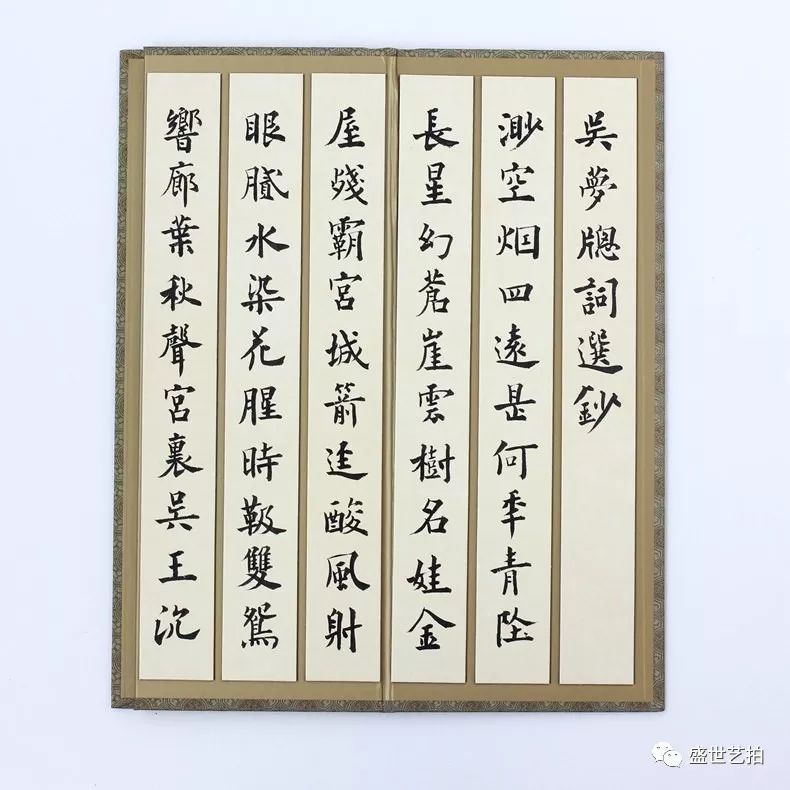 吳夢牕詞選鈔
渺空烟四遠是何年青墜
長星幻蒼崖雲樹名娃金
屋殘霸宮城箭逕酸風射
眼膩水染花腥時靸雙鴛
響廊葉秋聲宮裏吳王沉
盛世艺拍